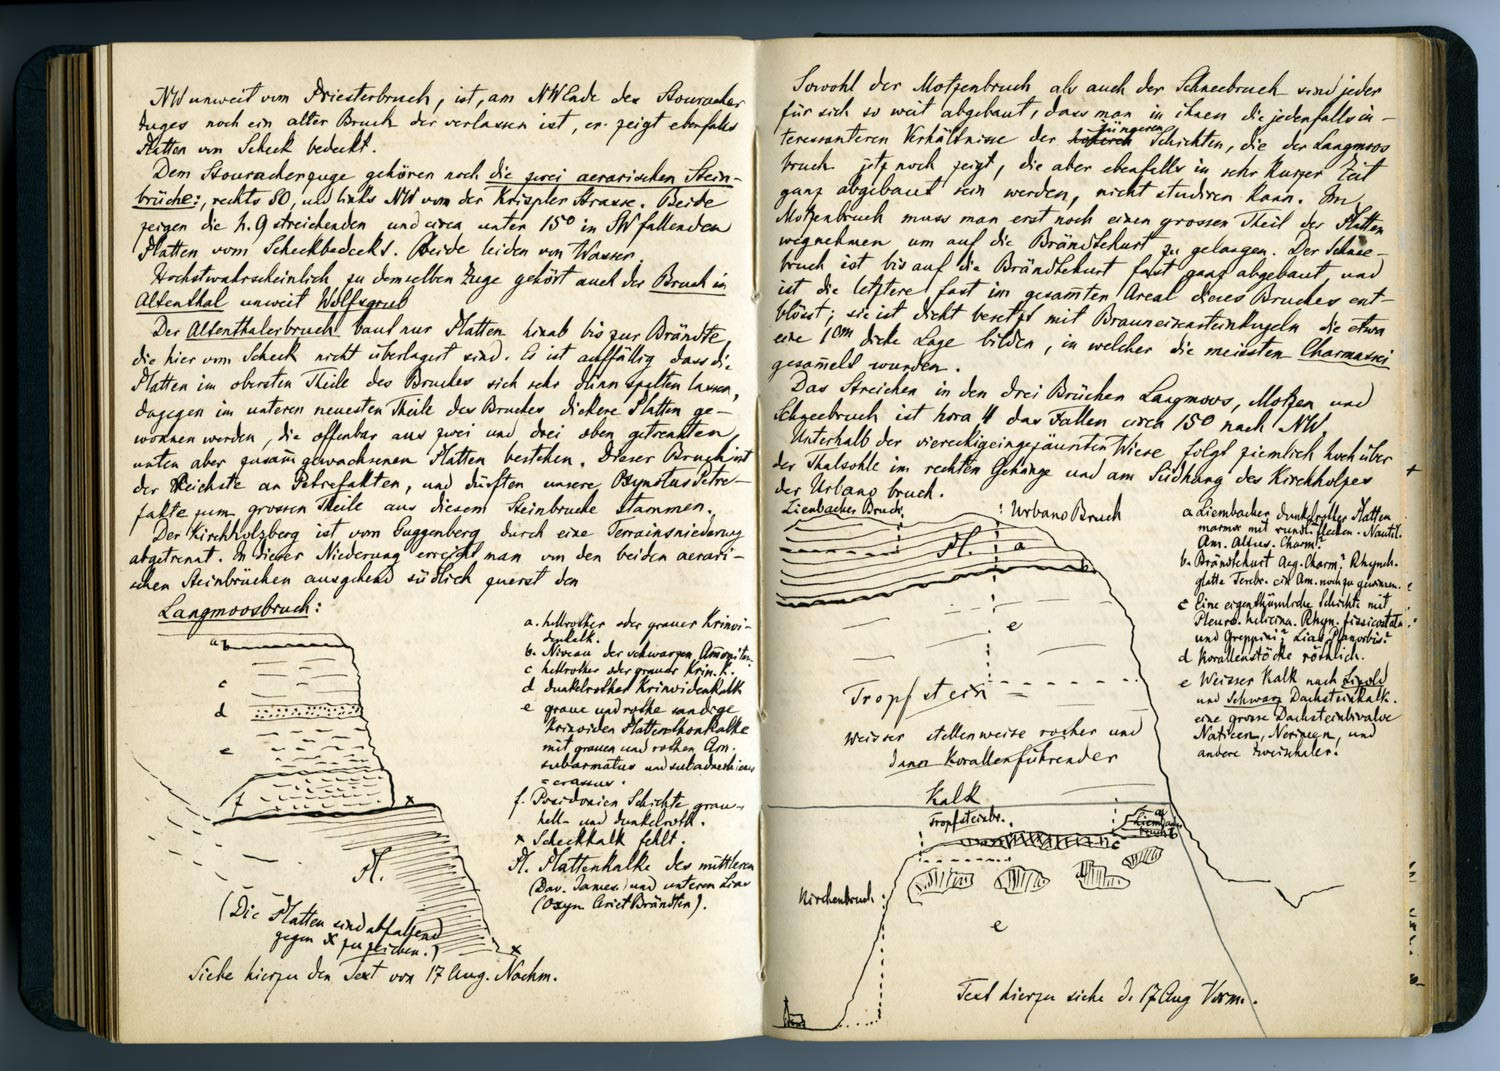 NW unweit vom Priesterbruch, ist, am NW Ende des Stouracher
Zuges noch ein alter Bruch der verlassen ist, er zeigt ebenfalls
Platten von Scheck bedeckt.
Dem Stouracherzuge gehören noch die zwei aerarischen Stein-
brüche:, rechts SO, und links NW von der Krispler Strasse. Beide
zeigen die h. 9 streichenden und circa unter 15° in SW fallenden
Platten vom Scheck bedeckt. Beide leiden von Wasser.
Höchstwahrscheinlich zu demselben Zuge gehört auch der Bruch in
Altenthal unweit Wolfsgrub
Der Altenthalerbruch baut nur Platten hinab bis zur Brändte,
die hier vom Scheck nicht überlagert sind. Es ist auffällig dass die
Platten im obersten Theile des Bruches sich sehr dünn spalten lassen,
dagegen im unteren neuesten Theile des Bruches dickere Platten ge-
wonnen werden, die offenbar aus zwei und drei oben getrennten
unten aber zusam̄ gewachsenen Platten bestehen. Dieser Bruch ist
der Reichste an Petrefakten, und dürften unsere Oxynotus Petre-
fakte zum grossen Theile aus diesem Steinbruche stammen.
Der Kirchholzberg ist vom Guggenberg durch eine Terrainsniederung
abgetrennt. In dieser Niederung erreicht man von den beiden aerari-
schen Steinbrüchen ausgehend südlich zuerst den
Langmoosbruch:
a b
c
d
e
f
x
Pl.
x
a. hellrother oder grauer Krinoi-
denkalk.
b. Niveau der schwarzen Am̄oniten
c hellrother oder grauer Krin. K.
d dunkelrother Krinoidenkalk
e graue und rothe sandige
Krinoiden Plattenthonkalke
mit grauen und rothen Am.
subarmatus und
= crassus.
f. Posidonien Schichte grau-
hell- und dunkelroth.
x Scheckkalk fehlt.
Pl. Plattenkalke des mittleren
(Dav. James.) und unteren Lias
(Oxyn Ariet Brändten).
(Die Platten sind abfallend
gegen x zu zeichen.)
Siehe hierzu den Text von 17 Aug. Nachm.
Sowohl der Motzenbruch als auch der Schneebruch sind jeder
für sich so weit abgebaut, dass man in ihnen die jedenfalls in-
teressanteren Verhältnisse der jüngeren Schichten, die der Langmoos
bruch jetz noch zeigt, die aber ebenfalls in sehr kurzer Zeit
ganz abgebaut sein werden, nicht studiren kann. Im
Motzenbruch muss man erst noch einen grossen Theil der Platten
wegnehmen um auf die Brändtkurt zu gelangen. Der Schnee-
bruch ist bis auf die Brändtkurt fast ganz abgebaut und
ist die letztere fast im gesam̄ten Areal dieses Bruches ent-
blösst; sie ist dicht besetzt mit Brauneisensteinkugeln die etwa
eine 1 cm dicke Lage bilden, in welcher die meissten Charmassei
gesam̄elt wurden.
Das Streichen in den drei Brüchen Langmoos, Motzen und
Schneebruch ist hora 4 das Fallen circa 15° nach NW.
Unterhalb der viereckigeingezäunten Wiese folgt ziemlich hoch über
der Thalsohle im rechten Gehänge und am Südhang des Kirchholzes
der Urbano bruch.
Lienbacher Bruch
Urbano Bruch
Pl. a
b
e
Tropfstein
Weisser stellenweise rother und
dann Korallenführender
Kalk
Tropfsteinbr.
a
Lienbacher
bruch b
c
Kirchenbruch
e
a Lienbacher dunkelrother Platten
marmor mit rundl. flecken. Nautil.
Am. Altus. Charm?
b. Brändtkurt Aeg. Charm? Rhynch.
glatte Terebr. ein Am. noch zu gewinnen.
c Eine eigenthümliche Schichte mit
Pleuro. helicina. Rhyn. fissicostata
und Greppini? Lias Planorbis?
d Korallenstöcke röthlich.
e Weisser Kalk nach Lipold
und Schwarz Dachsteinkalk.
eine grosse Dachsteinbivalve
Naticen, Nerineen, und
andere Zweischaler.
Text hierzu siehe d. 17 Aug Vorm.